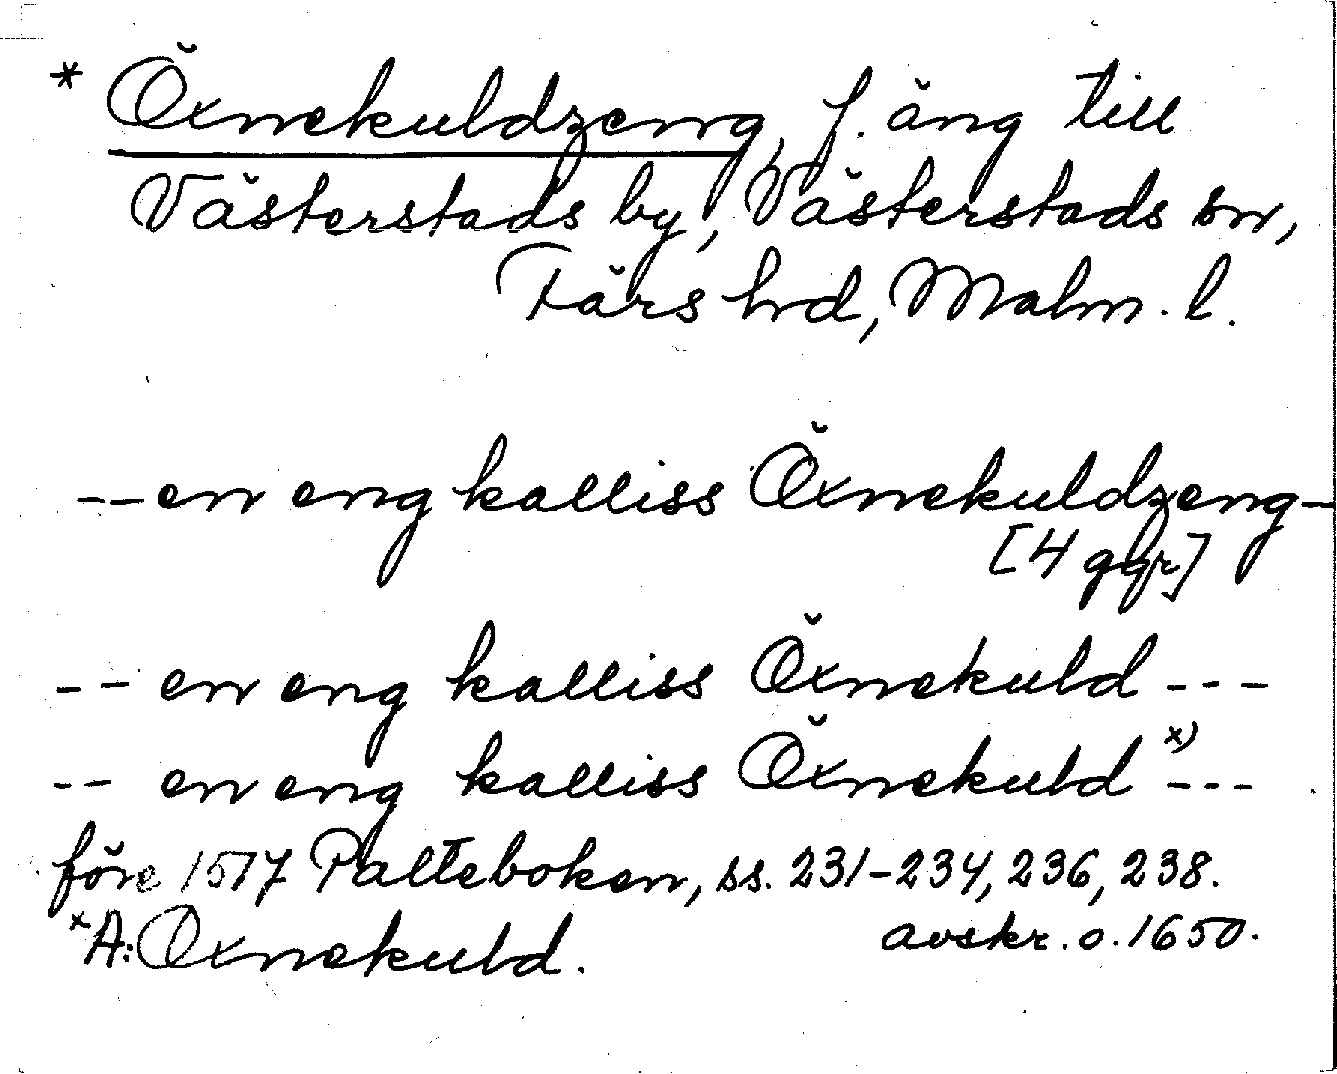 * Öxnekuldzeng, f. äng till
Västerstads by, Västerstads sn,
Färs hrd, Malm. l.
-- en eng kalliss Öxnekuldzeng -
[4 ggr]
-- en eng kalliss Öxnekuld ---
-- en eng kalliss Öxnekuld x) ---
före 1517 Palteboken, ss. 231-234, 236, 238.
x A: Oxnekuld. avskr. o. 1650.